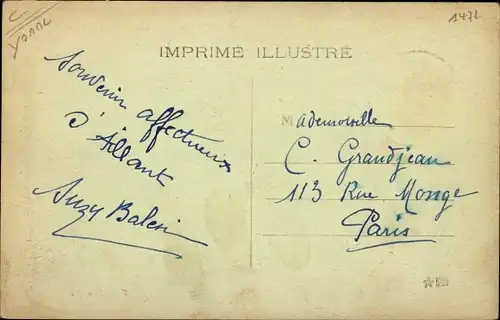 C
YONNE
1472
IMPRIMÉ ILLUSTRÉ
Souvenir affectueux
d'Aillant
Suzy
Mademoiselle
C. Grandjean
113 Rue Monge
Paris